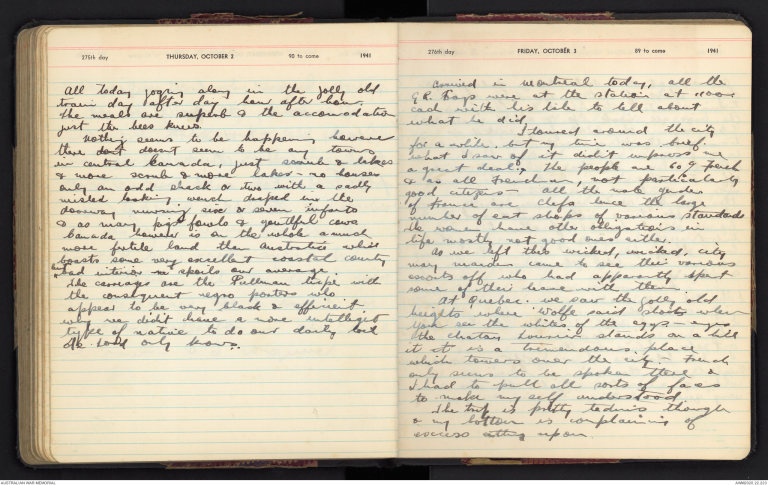 275th day THURSDAY, OCTOBER 2 90 to come 1941
All today joging along in the jolly old
train day after day hour after hour.
The meals are superb & the accomodation
just the bees knees.
Nothing seems to be happening however
there dont doesnt seem to be any towns
in central Canada, just scrub & lakes
& more scrub & more lakes - no houses
only an odd shack or two with a sadly
misled looking wench draped in the
doorway nursing six or seven infants
& as many pigs fowls & youthful cows
Canada however is on the whole a much
more fertile land than Australia which
boasts some very excellent coastal country
but interior spoils our average.
The carriages are the Pullman type with
the consequent negro porters who
appear to be very black & efficient
why we didn't have a more intelligent
type of native to do our dirty toil
de Lord only knows.
276th day FRIDAY, OCTOBER 3 89 to come 1941
Arrived in Montreal today, all the
boys were at the station at noon
each with his to tell about
what he did.
I toured around the city
for a while but my time was brief.
What I saw of it didn't impress me
a great deal. The people are 60% French
& as all Frenchmen, not particularly
good citizens - all the male gender
of France are chefs hence the large
number of eat shops of various standards
the women have other obligations in
life mostly not good ones either.
As we left this wicked, wicked, city
many maidens came to see their various
escorts off who had apparently spent
some of their leave with them.
At Quebec we saw the jolly old
heights where Wolfe said shoot when
you see the whites of the eggs - eyes
the chateau stands on a hill
it is a tremendous place
which towers over the city - French
only seems to be spoken there &
I had to pull all sorts of faces
to make myself understood.
The trip is pretty tedious though
& my bottom is complaining of
excess sitting upon.
AUSTRALIAN WAR MEMORIAL